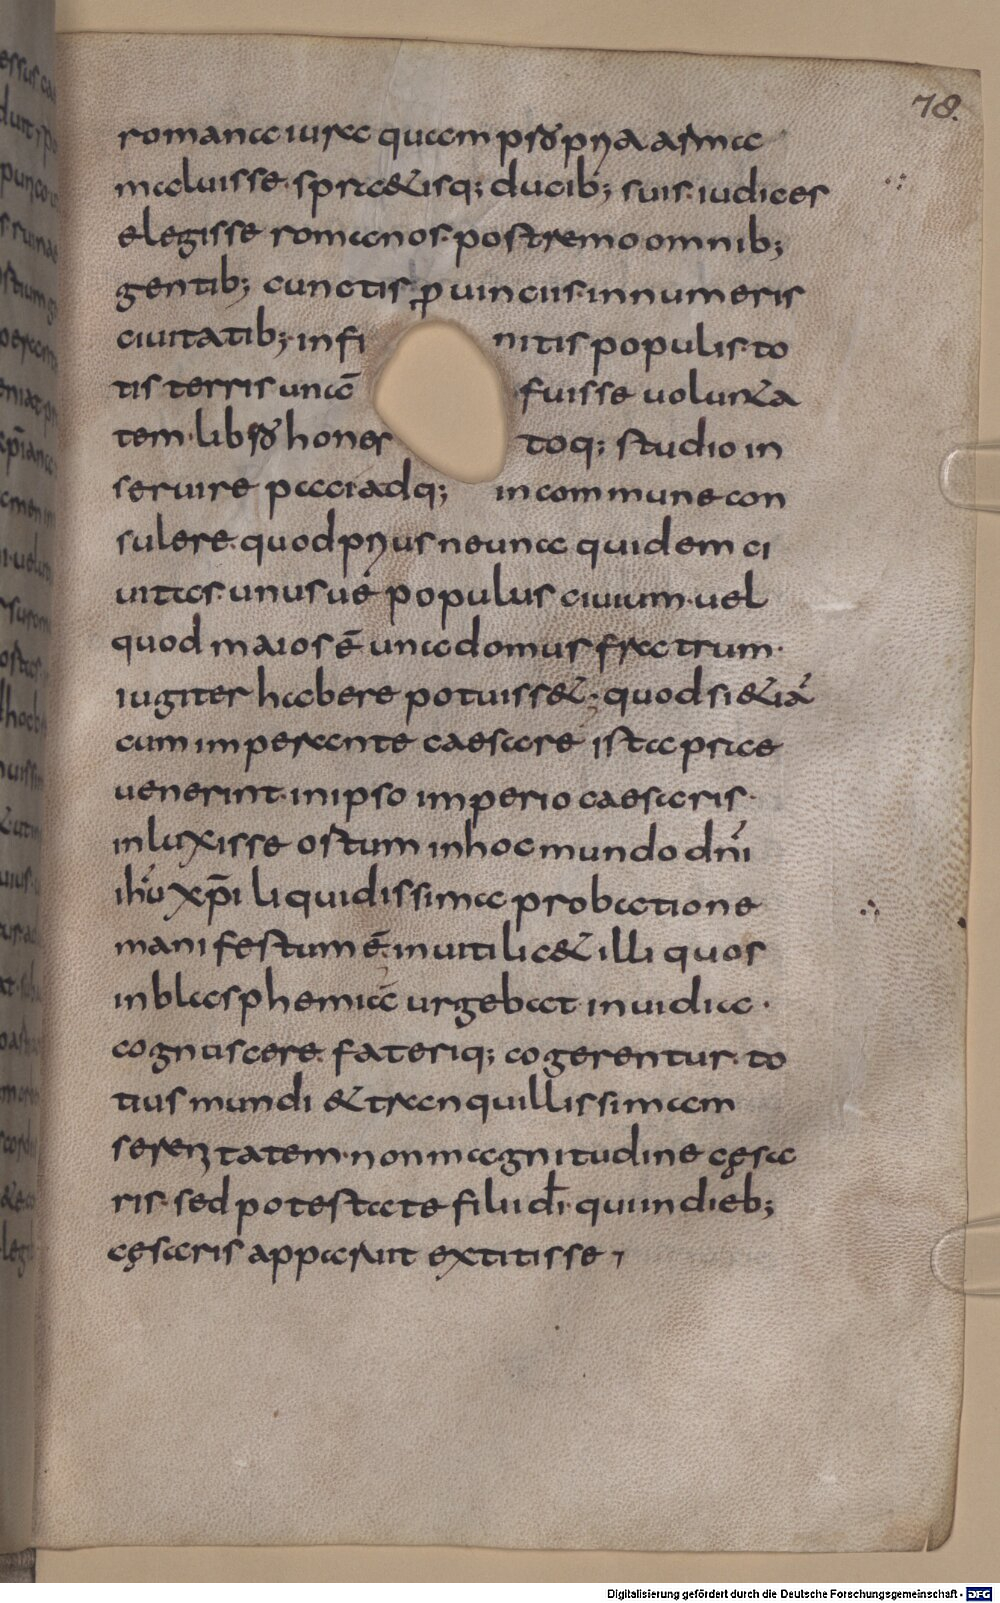 romana iura quam propria arma
maluisse· spraetisq; ducib; suis· iudices
elegisse romanos· postremo omnib;
gentib; cunctis ꝓuinciis· innumeris
ciuitatib; infinitis populis· to
tis terris unā fuisse uoluntā
tem· libero honestoq; studio in
seruire paciadq; in commune con
sulere· quod prius neunā quidem ci
uitas· unusué populus ciuium· uel
quod maios ē una domus fratrum·
iugiter habere potuiss&; quodsi &iā
cum imperante caesare ista prace
uenerint· in ipso imperio caesaris·
inluxisse ostum inhoc mundo dn̄i
ih̄u xp̄i liquidissima probatione
manifestum ē· inuiti lic& illi quos
inblasphemiā urgebat inuidia·
cogniscere· fateriq; cogerentur· to
tius mundi & tranquillissimam
serenitatem· non magnitudine cęsa
ris· sed potestate filii dī· qui indieb;
cęsaris apparuit extitisse
78.
Digitalisierung gefördert durch die Deutsche Forschungsgemeinschaft - DFG